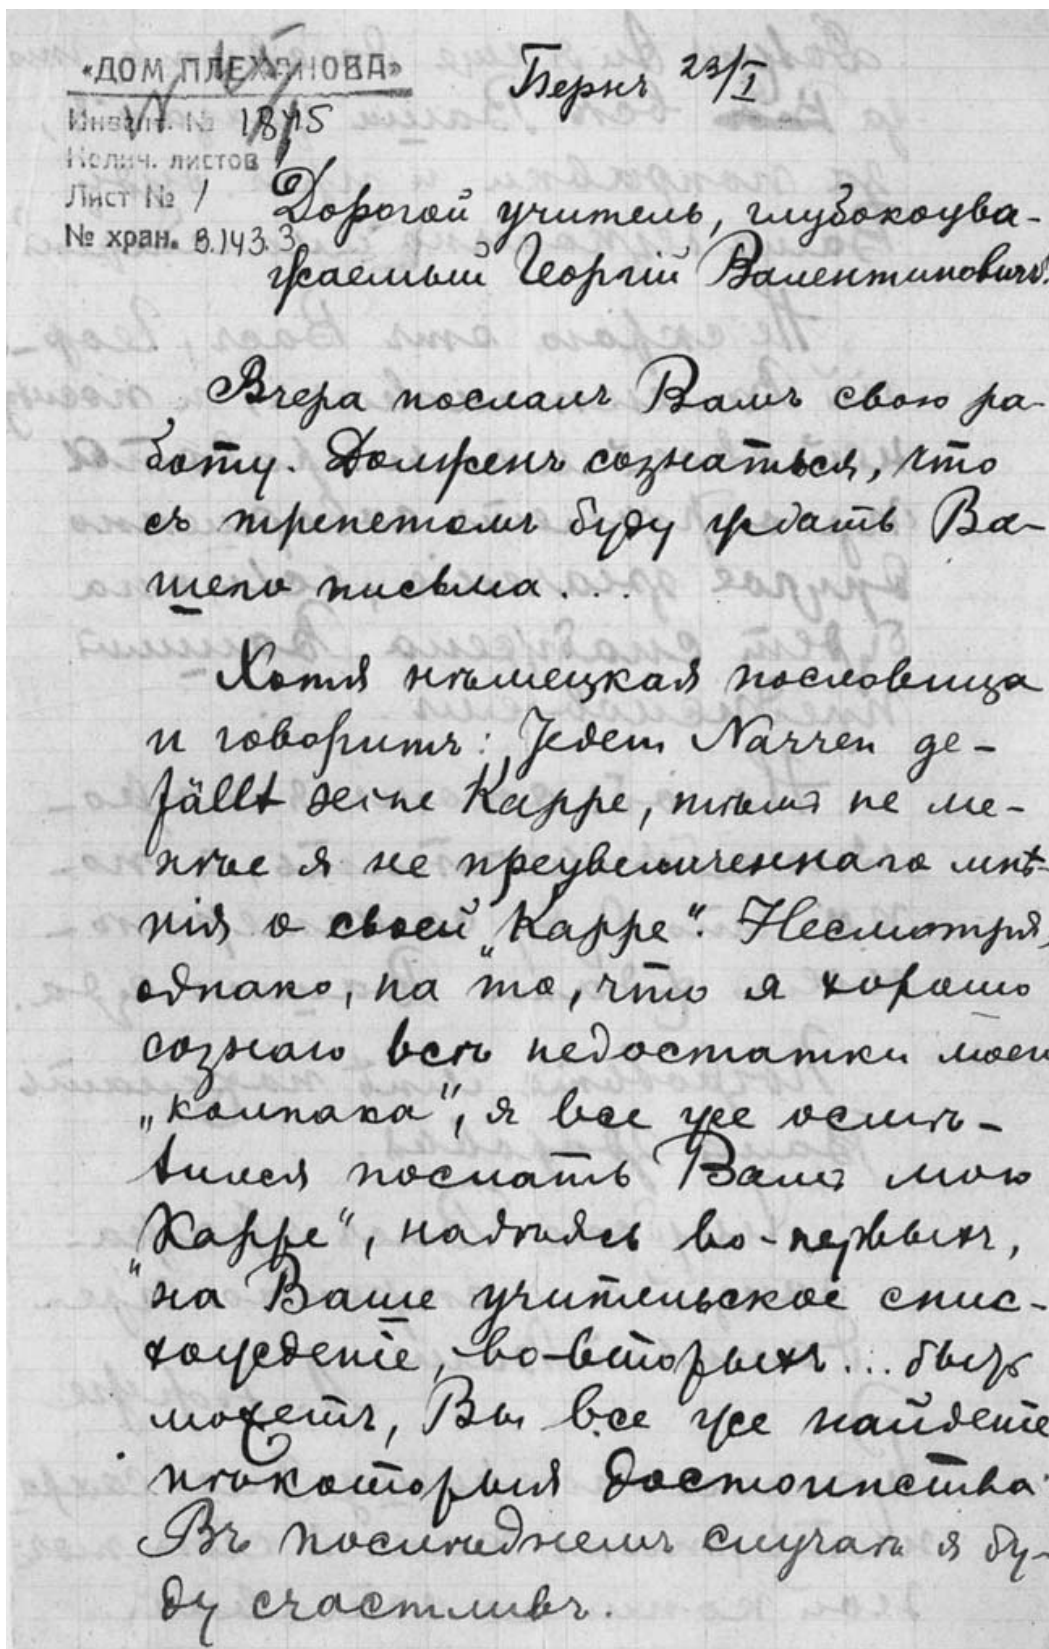 «ДОМ ПЛЕХАНОВА»
Инвент. № 1845
Колич. листов 1
Лист № 1
№ хран. В.143.3
Бернъ 23/I
Дорогой учитель, глубокоува-
жаемый Георгій Валентиновичъ!
Вчера послалъ Вамъ свою ра-
боту. Долженъ сознаться, что
съ трепетомъ буду ждать Ва-
шего письма...
Хотя нѣмецкая пословица
и говоритъ: „Jedem Narren ge-
fällt seine Kappe, тѣмъ не ме-
нѣе я не преувеличеннаго мнѣ-
нія о своей „Kappe“. Несмотря,
однако, на то, что я хорошо
сознаю всѣ недостатки моего
„колпака“, я все же осмѣ-
лился послать Вамъ мою
„Kappe“, надѣясь во-первыхъ,
на Ваше учительское снис-
хожденіе, во-вторыхъ... быть
можетъ, Вы все же найдете
нѣкоторыя достоинства
Въ послѣднемъ случаѣ я бу-
ду счастливъ.